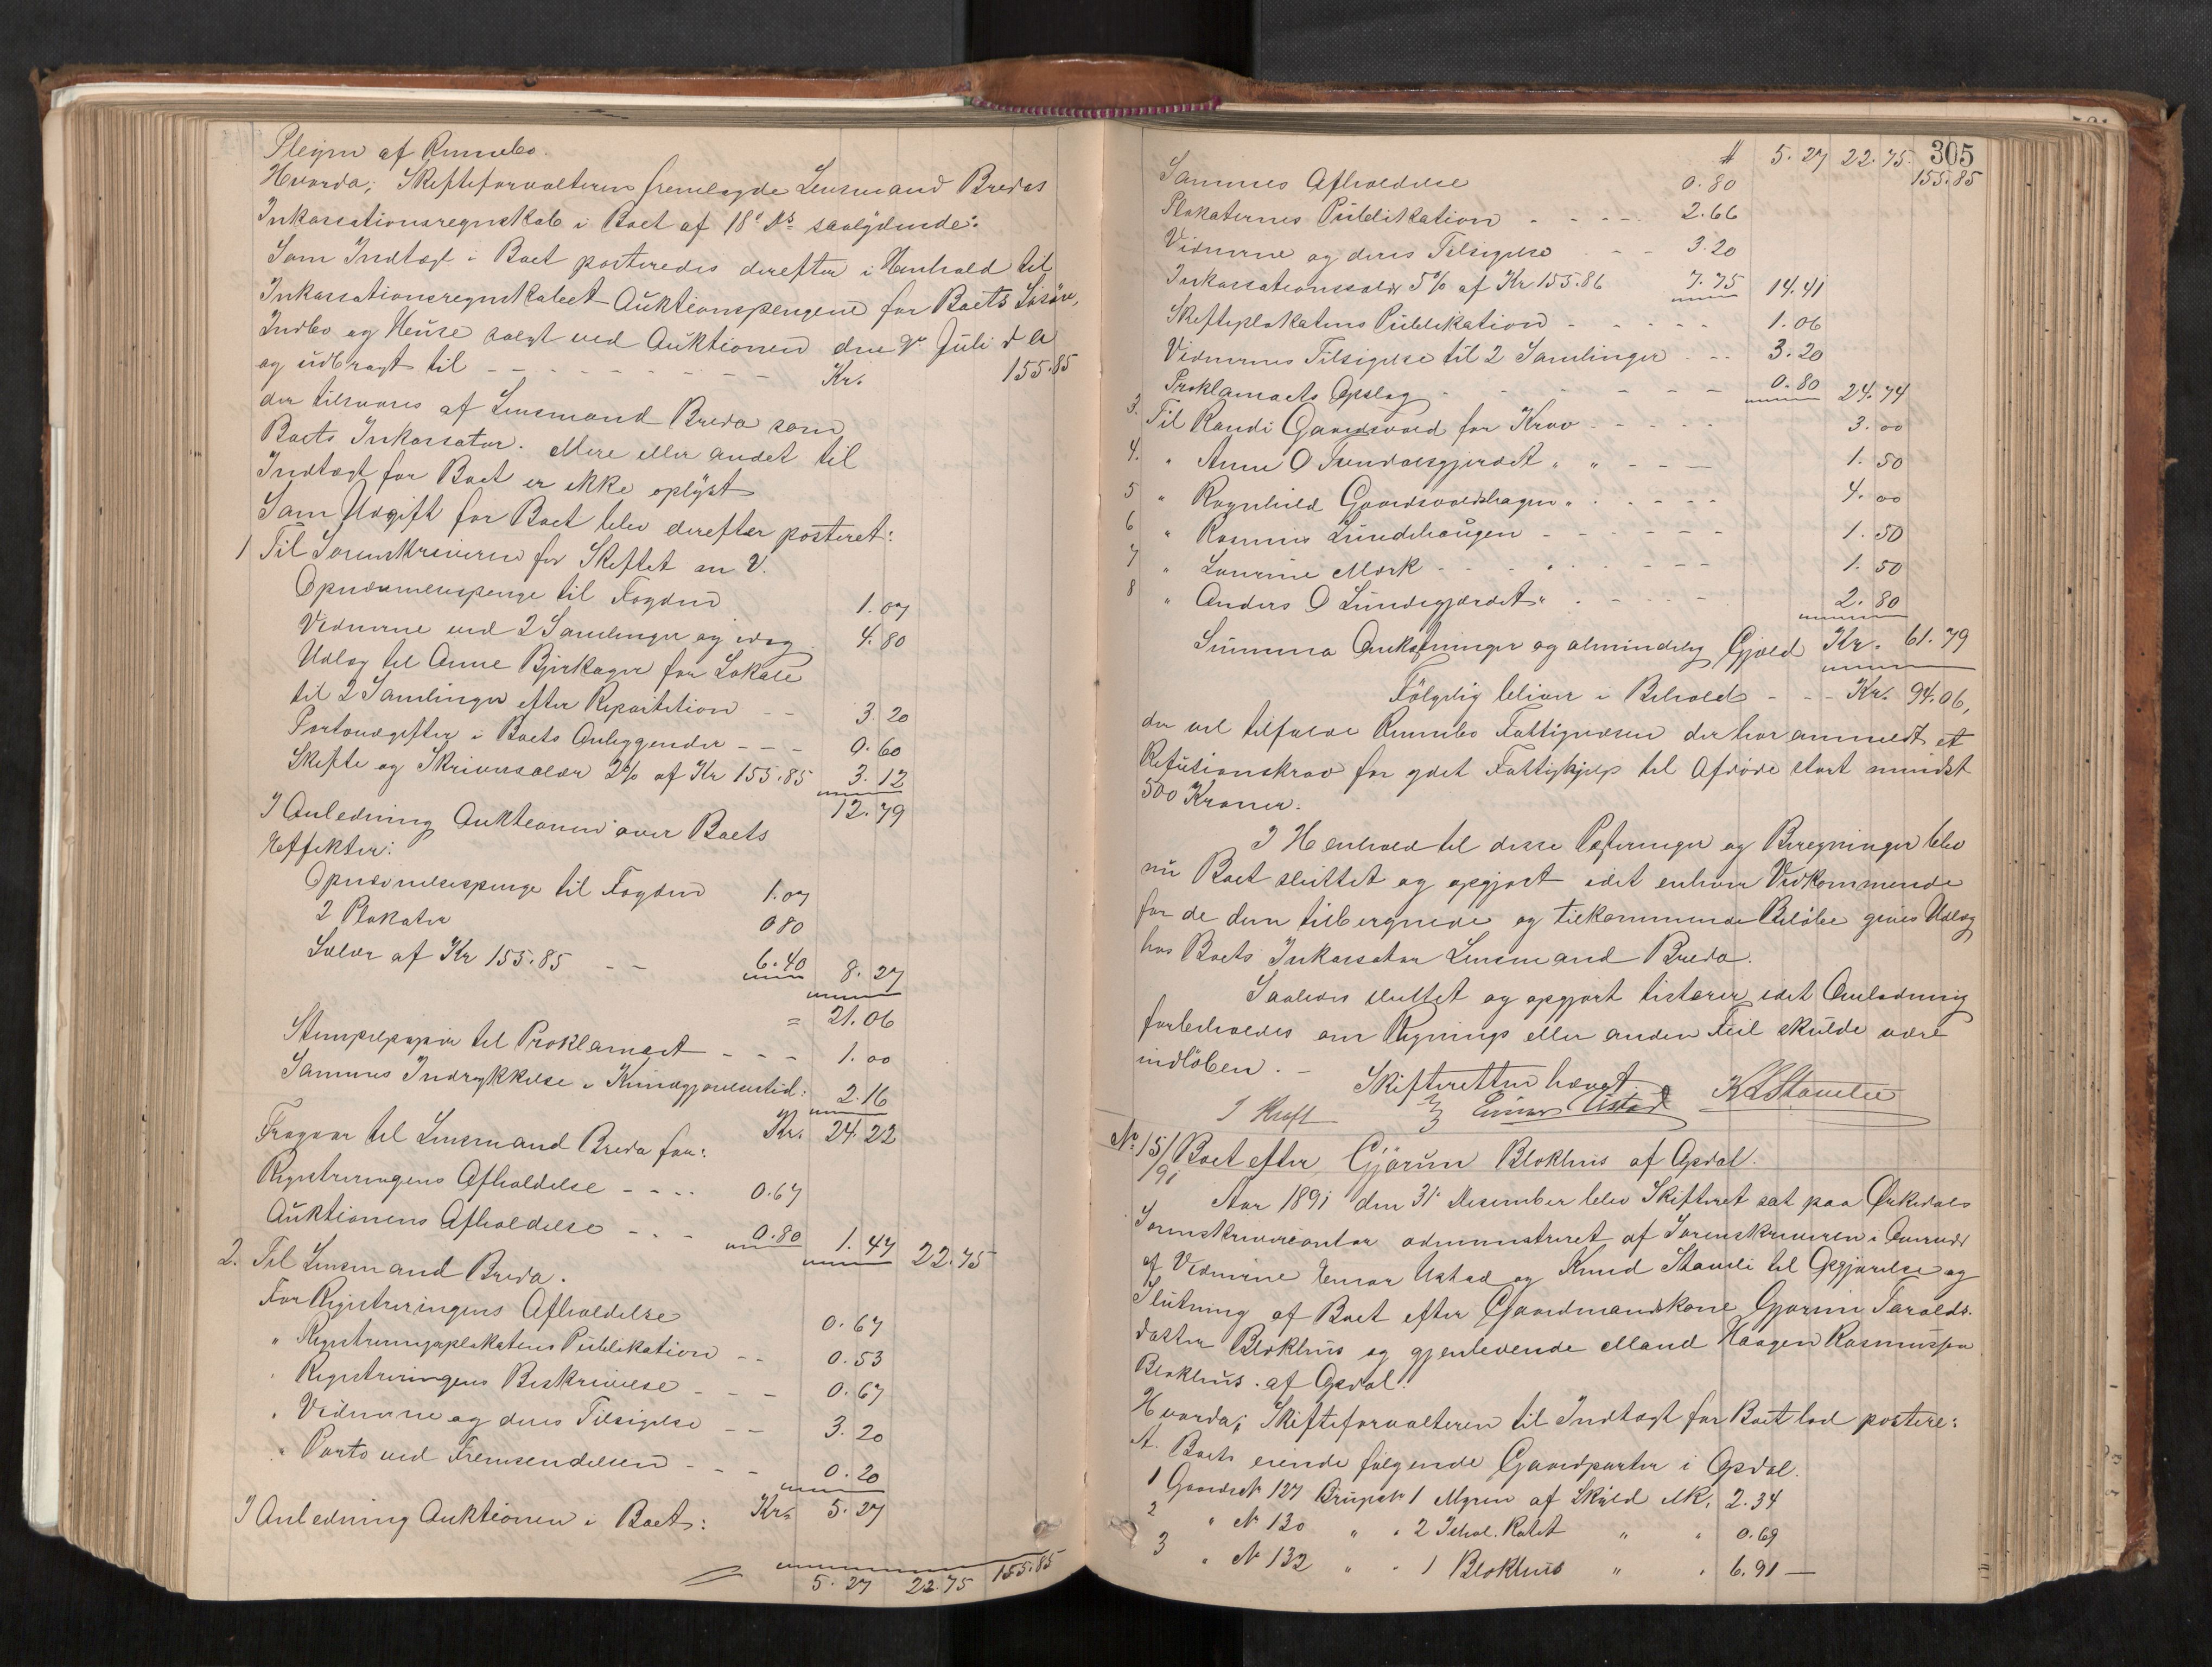 Plejen af Rennebo.
Hvorda; Skifteforvalteren fremlagde Lensmand Bredes
Inkassationsregnskab i Boet af 18de Ds saalydende:
Som Indtægt i Boet posteredes derefter i Henhold til
Inkassationsregnskabet Auktionspengene for Boets Løsøre,
Indbo og Huse solgt ved Auktionen den Juli d A
og udbragt til - - - - - - - - Kr. 155.85
der tilsvares af Lensmand Breda som
Boets Inkassator. Mere eller andet til
Indtægt for Boet er ikke oplyst
Som Udgift for Boet blev derefter posteret:
1 Til Sorenskriveren for Skiftet m V.
Opnævnelsespenge til Fogden 1.07
Vidnerne ved 2 Samlinger og idag 4.80
Udlæg til Anne Bjerkager for Lokale
til 2 Samlinger efter Repartition - - 3.20
Portoudgifter i Boets Anliggender - - - 0.60
Skifte og Skriversalær 2% af Kr 155.85 3.12
12.79
I Anledning Auktionen over Boets
Effekter:
Opnævnelsespenge til Fogden 1.07
2 Plakater 0 80
Salær af Kr 155.85 - - 6.40 8.27
= 21.06
Stempelpapir til Proklamaet - - - 1.00
Sammes Indrykkelse i Kundgjørelsestid: 2.16
Kr. 24.22
Fragaar til Lensmand Breda for:
Registreringens Afholdelse - - - - 0.67
Auktionens Afholdelse - - - 0.80 1.47 22.75
2. Til Lensmand Breda.
For Registreringens Afholdelse 0.67
" Registreringsplakatens Publikation - - 0.53
" Registreringens Beskrivelse - - - 0.67
" Vidnerne og deres Tilsigelse - - 3.20
" Porto ved Fremsendelsen - - - 0.20
I Anledning Auktionen i Boet: Kr. 5.27
5.27 22.75 155.85
305
5.27 22.75. 155.85
Sammes Afholdelse 0.80
Plakaternes Publikation - - - - 2.66
Vidnerne og deres Tilsigelse - - 3.20
Inkassationssalær 5% af Kr 155.86 7.75 14.41
Skifteplakatens Publikation - - - - - 1.06
Vidnernes Tilsigelse til 2 Samlinger - - - 3.20
Proklamaets Opslag - - - - - - 0.80 24.74
3. Til Randi Gaardsvold for Krav - - - - - 3.00
4. " Anne O " " - - - 1.50
5 " Ragnhild Gaardsvoldshagen " - - - - 4.00
6 " Rasmus Lundehaugen - - - - - - 1.50
7 " Laurine Mærk - - - - - - - - 1.50
8 " Anders O Lundegjærdet " - - - - - 2.80
Summa Omkostninger og almindelig Gjæld Kr. 61.79
Følgelig bliver i Behold - - - Kr. 94.06,
der vil tilfalde Rennebo Fattigvæsen der har anmeldt et
Refusionskrav for ydet Fattighjelp til Afdøde stort mindst
500 Kroner.
I Henhold til disse Posteringer og Beregninger blev
nu Boet sluttet og opgjort idet enhver Vedkommende
for de dem tilberegnede og tilkommende Beløbe gives Udlæg
hos Boets Inkassator Lensmand Breda.
Saaledes sluttet og opgjort tisterer idet Anledning
forbeholdes om Regnings eller anden Feil skulde være
indløben. -
Skifteretten hævet.
J Kraft Einar Ustad K Stavelie
No. 15/91 Boet efter Gjørun Blokhus af Opdal.
Aar 1891 den 31te Desember blev Skifteret sat paa Ørkedals
Sorenskrivercontor administreret af Sorenskriveren i Overvær
af Vidnerne Einar Ustad og Knud Staveli til Opgjørelse og
Slutning af Boet efter Gaardmandskone Gjørun Tarolds-
datter Blokhus og gjenlevende Mand Haagen Rasmussen
Blokhus af Opdal.
Hvorda; Skifteforvalteren til Indtægt for Boet lod postere:
A. Boets eiende følgende Gaardparter i Opdal.
1 Gaards No 127 Brugs No 1 Myren af Skyld Mk. 2.34
2 " No 130 " " 2 " " 0.69
3 " No 132 " " 1 Blokhus " " 6.91 —